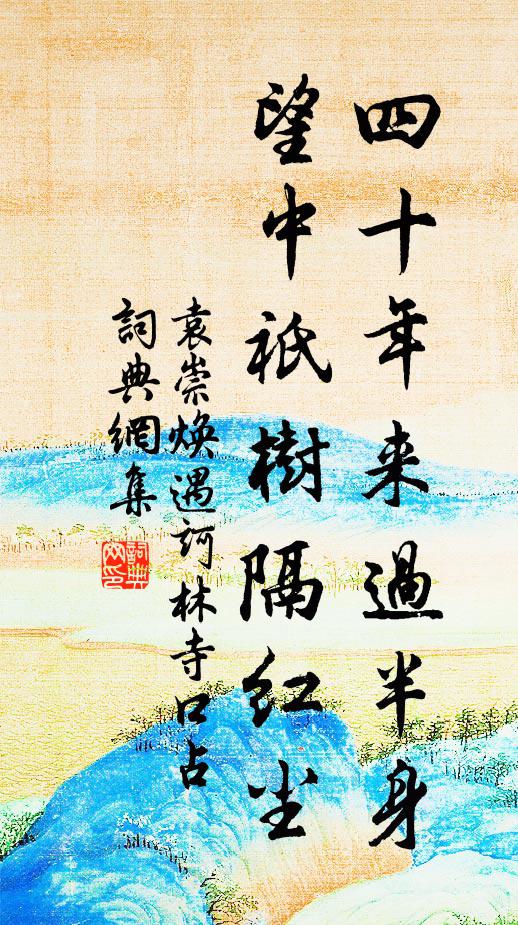 四十年来過半身
望中祇樹隔紅尘
袁崇焕遇訶林寺口占
詞典網集
詞典網印